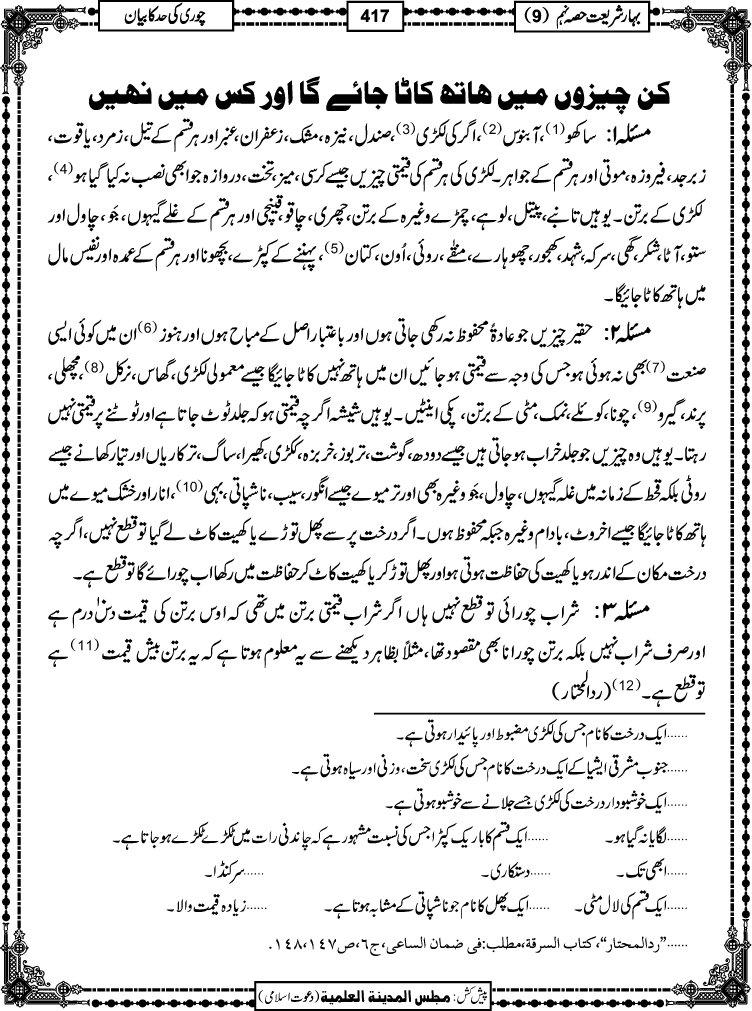 بہارِ شریعت حصہ نہم (9)
417
چوری کی حد کا بیان
کن چیزوں میں ھاتھ کاٹا جائے گا اور کس میں نھیں
مسئلہ ۱: ساکھو(1)، آبنوس(2)، اگر کی لکڑی(3)، صندل، نیزہ، مشک، زعفران، عنبر اور ہر قسم کے تیل، زمرد، یاقوت،
زبرجد، فیروزہ، موتی اور ہر قسم کے جواہر۔ لکڑی کی ہر قسم کی قیمتی چیزیں جیسے کرسی، میز، تخت، دروازہ جو ابھی نصب نہ کیا گیا ہو(4)،
لکڑی کے برتن۔ یوہیں تانبے، پیتل، لوہے، چمڑے وغیرہ کے برتن، چھری، چاقو، قینچی اور ہر قسم کے غلے گیہوں، جَو، چاول اور
ستو، آٹا، شکر، گھی، سرکہ، شہد، کھجور، چھوہارے، منقے، روئی، اُون، کتان(5)، پہننے کے کپڑے، بچھونا اور ہر قسم کے عمدہ اور نفیس مال
میں ہاتھ کاٹا جائیگا۔
مسئلہ ۲: حقیر چیزیں جو عادۃً محفوظ نہ رکھی جاتی ہوں اور باعتبار اصل کے مباح ہوں اور ہنوز(6) ان میں کوئی ایسی
صنعت(7) بھی نہ ہوئی ہو جس کی وجہ سے قیمتی ہو جائیں ان میں ہاتھ نہیں کاٹا جائیگا جیسے معمولی لکڑی، گھاس، نرکل(8)، مچھلی،
پرند، گیرو(9)، چونا، کوئلے، نمک، مٹی کے برتن، پکی اینٹیں۔ یوہیں شیشہ اگرچہ قیمتی ہو کہ جلد ٹوٹ جاتا ہے اور ٹوٹنے پر قیمتی نہیں
رہتا۔ یوہیں وہ چیزیں جو جلد خراب ہو جاتی ہیں جیسے دودھ، گوشت، تربوز، خربزہ، ککڑی، کھیرا، ساگ، ترکاریاں اور تیار کھانے جیسے
روٹی بلکہ قحط کے زمانہ میں غلہ گیہوں، چاول، جَو وغیرہ بھی اور تر میوے جیسے انگور، سیب، ناشپاتی، بہی(10)، انار اور خشک میوے میں
ہاتھ کاٹا جائیگا جیسے اخروٹ، بادام وغیرہ جبکہ محفوظ ہوں۔ اگر درخت پر سے پھل توڑے یا کھیت کاٹ لے گیا تو قطع نہیں، اگرچہ
درخت مکان کے اندر ہو یا کھیت کی حفاظت ہوتی ہو اور پھل توڑ کر یا کھیت کاٹ کر حفاظت میں رکھا اب چورائے گا تو قطع ہے۔
مسئلہ ۳: شراب چورائی تو قطع نہیں ہاں اگر شراب قیمتی برتن میں تھی کہ اوس برتن کی قیمت دس۱۰ درم ہے
اور صرف شراب نہیں بلکہ برتن چورانا بھی مقصود تھا، مثلاً بظاہر دیکھنے سے یہ معلوم ہوتا ہے کہ یہ برتن بیش قیمت(11) ہے
تو قطع ہے۔(12) (ردالمحتار)
......ایک درخت کا نام جس کی لکڑی مضبوط اور پائیدار ہوتی ہے۔
......جنوب مشرقی ایشیا کے ایک درخت کا نام جس کی لکڑی سخت، وزنی اور سیاہ ہوتی ہے۔
......ایک خوشبودار درخت کی لکڑی جسے جلانے سے خوشبو ہوتی ہے۔
......لگایا نہ گیا ہو۔ ......ایک قسم کا باریک کپڑا جس کی نسبت مشہور ہے کہ چاندنی رات میں ٹکڑے ٹکڑے ہو جاتا ہے۔
......ابھی تک۔ ......دستکاری۔ ......سرکنڈا۔
......ایک قسم کی لال مٹی۔ ......ایک پھل کا نام جو ناشپاتی کے مشابہ ہوتا ہے۔ ......زیادہ قیمت والا۔
......"ردالمحتار"، کتاب السرقة، مطلب: فی ضمان الساعی، ج٦، ص١٤٧، ١٤٨.
پیش کش: مجلس المدينة العلمية (دعوتِ اسلامی)